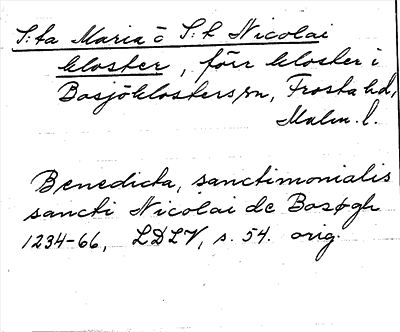 S:ta Maria o S:t Nicolai
kloster, förr kloster i
Bosjöklosters sn, Frosta hd,
Malm. l.
Benedicta, sanctimonialis
sancti Nicolai de Bosøgh
1234-66, LDLV, s. 54. orig.